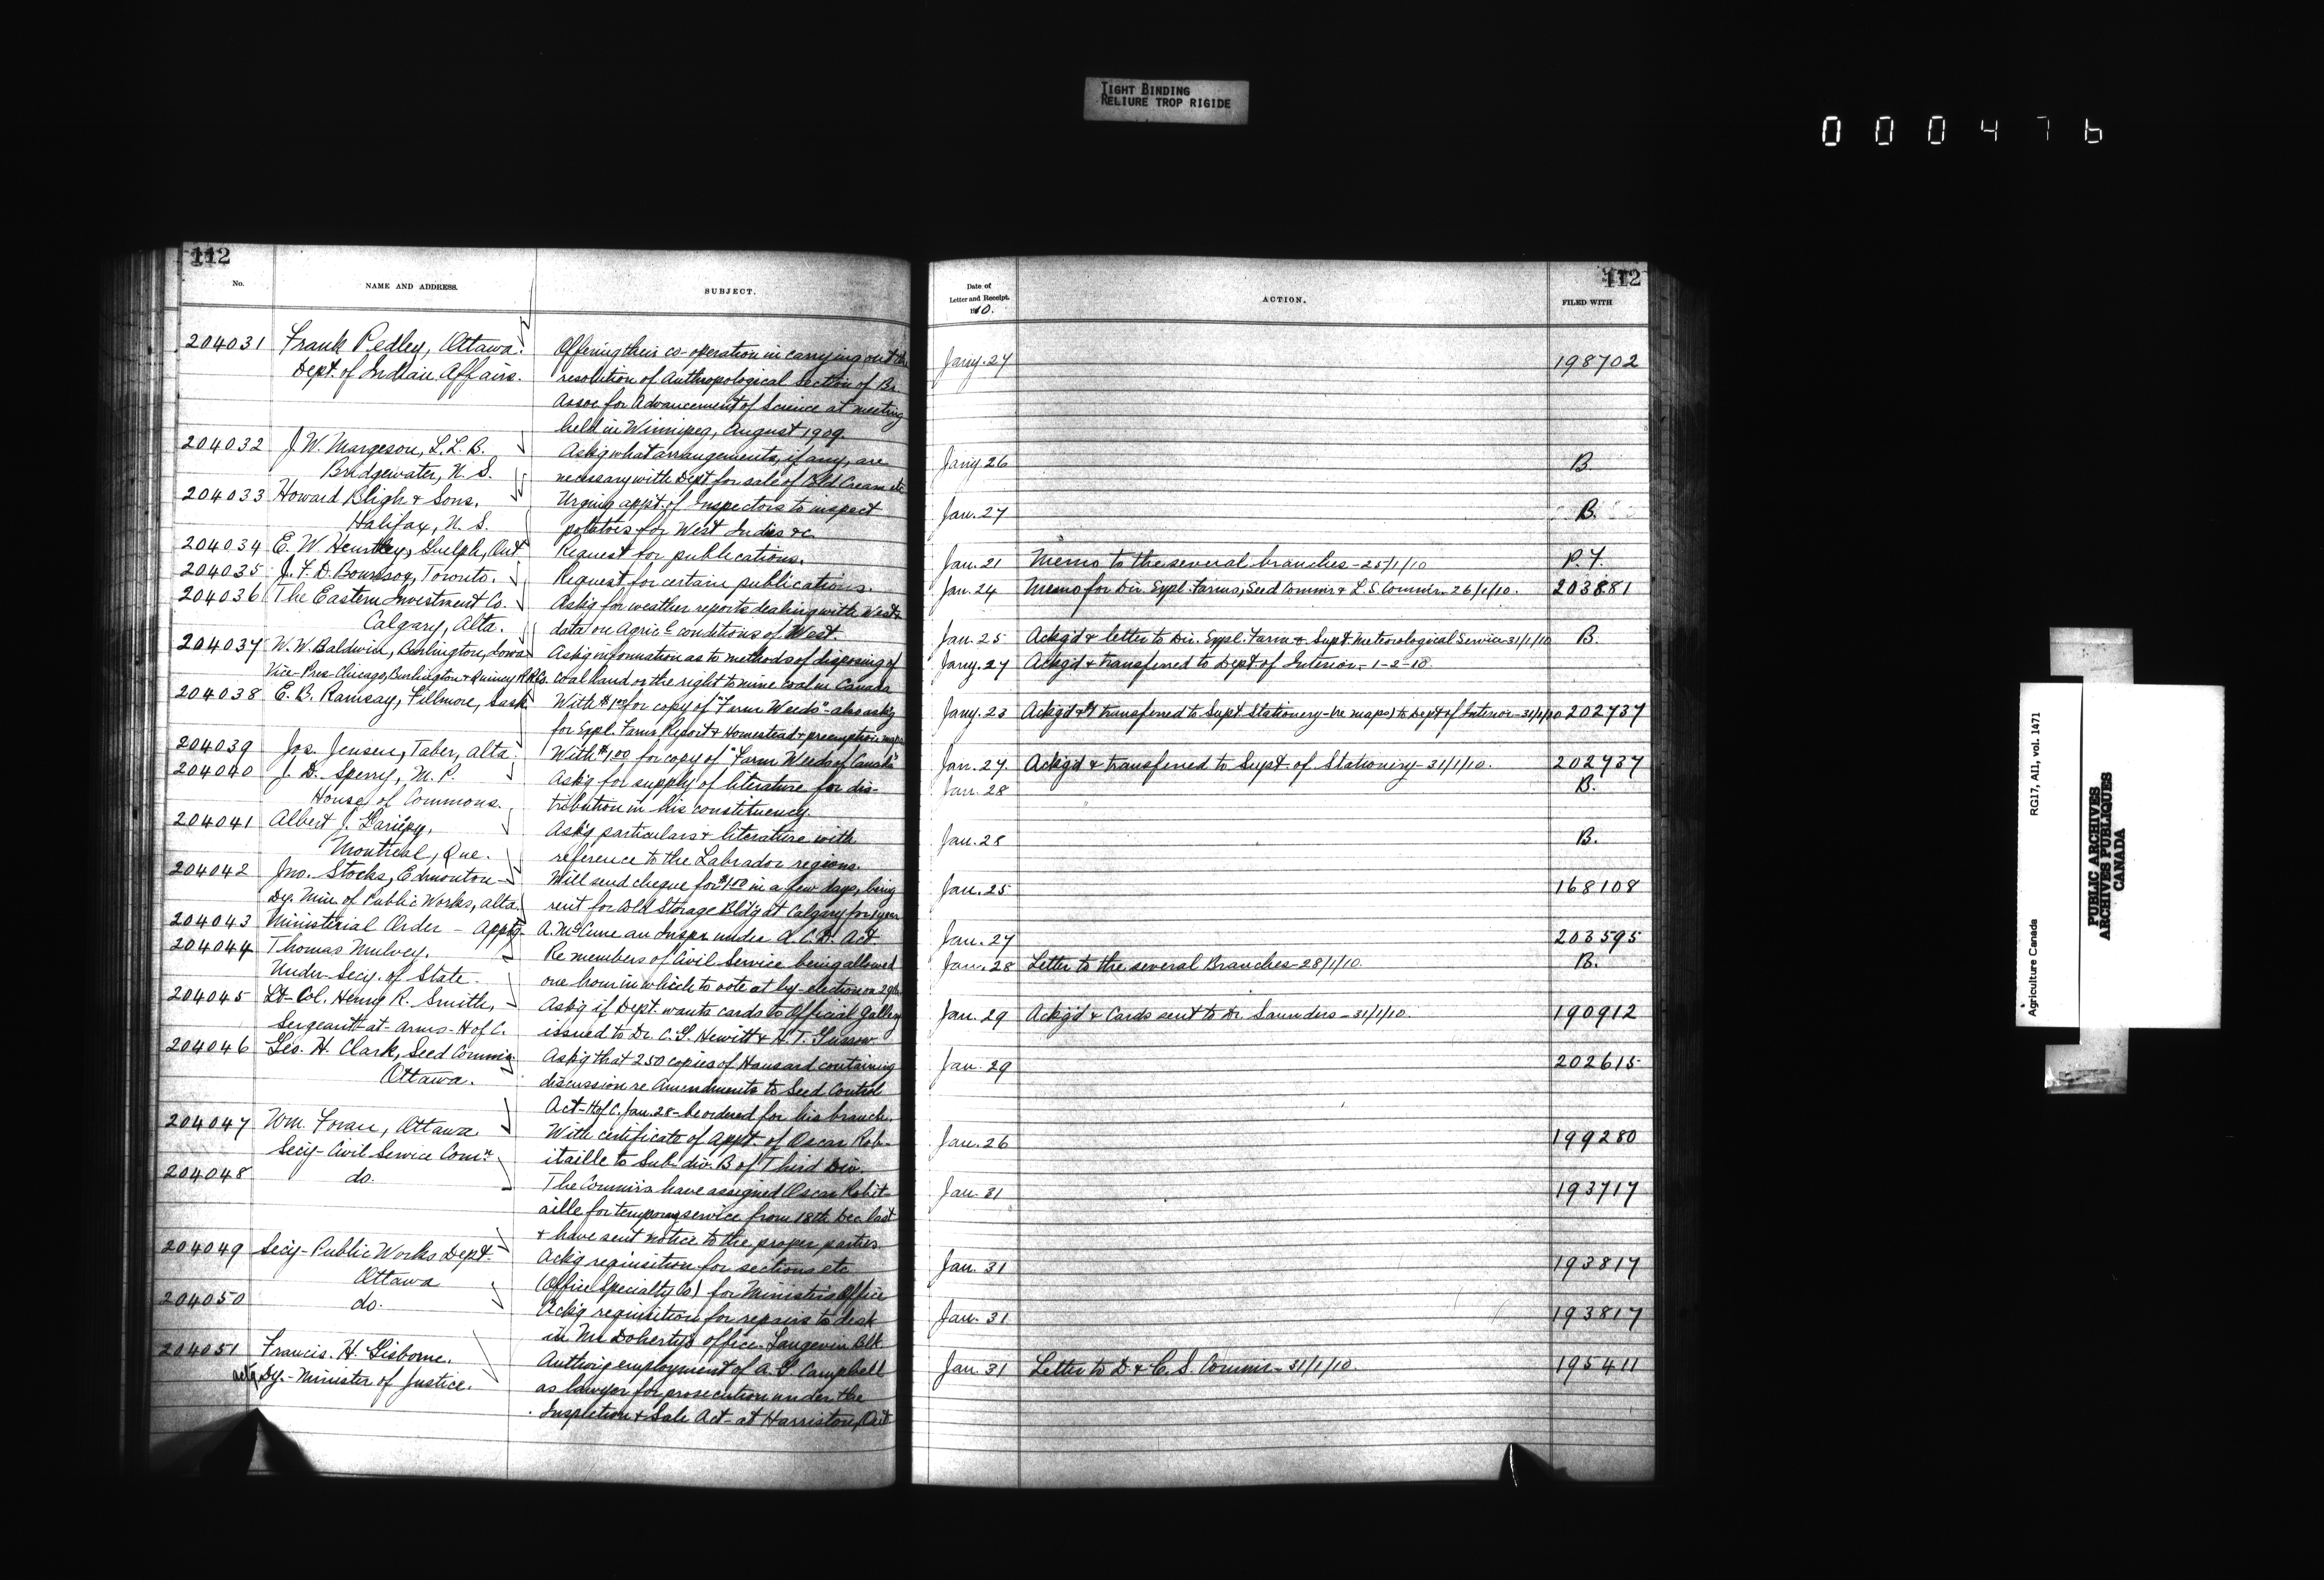 TIGHT BINDING
RELIURE TROP RIGIDE
000476
112
No.
NAME AND ADDRESS.
SUBJECT.
204031 Frank Pedley, Ottawa. Offering their co-operation in carrying out the
Dept. of Indian Affairs. resolution of Anthropological Section of Br.
Assoc. for Advancement of Science at meeting
held in Winnipeg, August 1909.
204032 J. W. Margeson, L.L.B. Ask'g what arrangements, if any, are
Bridgewater, N. S. necessary with Dept for sale of Cold Cream etc
204033 Howard Bligh & Sons. Urging appt. of Inspectors to inspect
Halifax, N. S. potatoes for West Indies &c.
204034 E. W. Guelph, Ont Request for publications.
204035 J. F. D. Toronto. Request for certain publications.
204036 The Eastern Investment Co. Ask'g for weather reports dealing with West &
Calgary, Alta. data on Agricl. conditions of West.
204037 W. W. Baldwin, Burlington, Iowa Ask'g information as to methods of disposing of
Vice-Pres-Chicago, Burlington & Quincy R.R. Co. coal land or the right to mine coal in Canada
204038 E. B. Ramsay, Fillmore, Sask With $1.00 for copy of "Farm Weeds"- also ask'g
for Expl. Farms Report & Homestead & preemption maps
204039 Jos. Jensen, Taber, Alta With $1.00 for copy of "Farm Weeds of Canada"
204040 J. D. Sperry, M. P. Ask'g for supply of literature for dis-
House of Commons. tribution in his constituency.
204041 Albert J. Gariépy, Ask'g particulars & literature with
Montreal, Que. reference to the Labrador regions.
204042 Jno. Stocks, Edmonton- Will send cheque for $1.00 in a few days, being
Dy. Min. of Public Works, Alta. rent for Cold Storage Bldg at Calgary for 1 year
204043 Ministerial Order - Appt'g. A. McCune an Inspr. under Act
204044 Thomas Mulvey. Re members of Civil Service being allowed
Under-Secy. of State. one hour in which to vote at by-election on 29th
204045 Lt-Col. Henry R. Smith, Ask'g if Dept. wants cards to Official Gallery
Sergeant-at-Arms-H of C. issued to Dr. C. G. Hewitt & H. T. Gussow
204046 Geo. H. Clark, Seed Commis'r Ask'g that 250 copies of Hansard containing
Ottawa. discussion re Amendments to Seed Control
Act-H of C. Jan. 28- be ordered for his branch
204047 Wm. Foran, Ottawa With certificate of appt. of Oscar Rob-
Secy- Civil Service Comn itaille to Sub-div. B of Third Div.
204048 do. The Commrs. have assigned Oscar Robit-
aille for temporary service from 18th Dec. last
& have sent notice to the proper parties
204049 Secy- Public Works Dept- Ack'g requisition for sections etc
Ottawa (Office Specialty Co) for Minister's Office
204050 do. Ack'g requisition for repairs to desk
in Mr. Doherty's office. Langevin Blk
204051 Francis. H. Gisborne. Auth'zing employment of A. G. Campbell
act'g Dy.- Minister of Justice. as lawyer for prosecution under the
Inspection & Sale Act- at Harriston, Ont
112
Date of
Letter and Receipt.
1910.
ACTION.
FILED WITH
Jany. 27 198702
Jany 26 B.
Jan. 27 B.
Jan. 21 Memo to the several branches - 25/1/10 P. F.
Jan. 24 Memo for Dir. Expl. Farms, Seed Commr & L. S. Commr. 26/1/10. 203881
Jan. 25 Ackg'd & letter to Dir. Expl. Farm & Supt Meteorological Service-31/1/10 B.
Jany. 27 Ackg'd & transferred to Dept of Interior - 1-2-10.
Jany. 23 Ackg'd & transferred to Supt Stationery-(re maps) to Dept of Interior-31/1/10 202737
Jan. 27 Ackg'd & transferred to Supt. of Stationery-31/1/10. 202737
Jan. 28 B.
Jan. 28 B.
Jan. 25 168108
Jan. 27 203595
Jan. 28 Letter to the several Branches-28/1/10. B.
Jan. 29 Ackg'd & Cards sent to Dr. Saunders-31/1/10. 190912
Jan. 29 202615
Jan. 26 199280
Jan. 31 193717
Jan. 31 193817
Jan. 31 193817
Jan. 31 Letter to D. & C. S. Commr.-31/1/10. 195411
Agriculture Canada RG17, AII, vol. 1471
PUBLIC ARCHIVES
ARCHIVES PUBLIQUES
CANADA